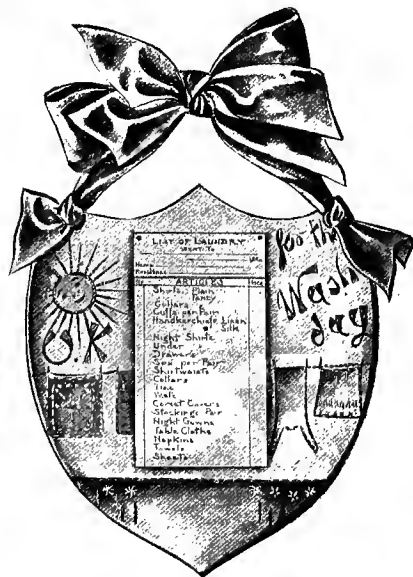 LIST OF LAUNDRY
SENT TO
Name
Residence
No ARTICLES Price
Shirts, Plain
" Fancy
Collars
Cuffs per Pair
Handkerchiefs Linen
" Silk
Night Shirts
Under "
Drawers
Sox per Pair
Shirtwaists
Collars
Ties
Vests
Corset Covers
Stockings Pair
Night Gowns
Table Cloths
Napkins
Towels
Sheets
for the
Wash
day